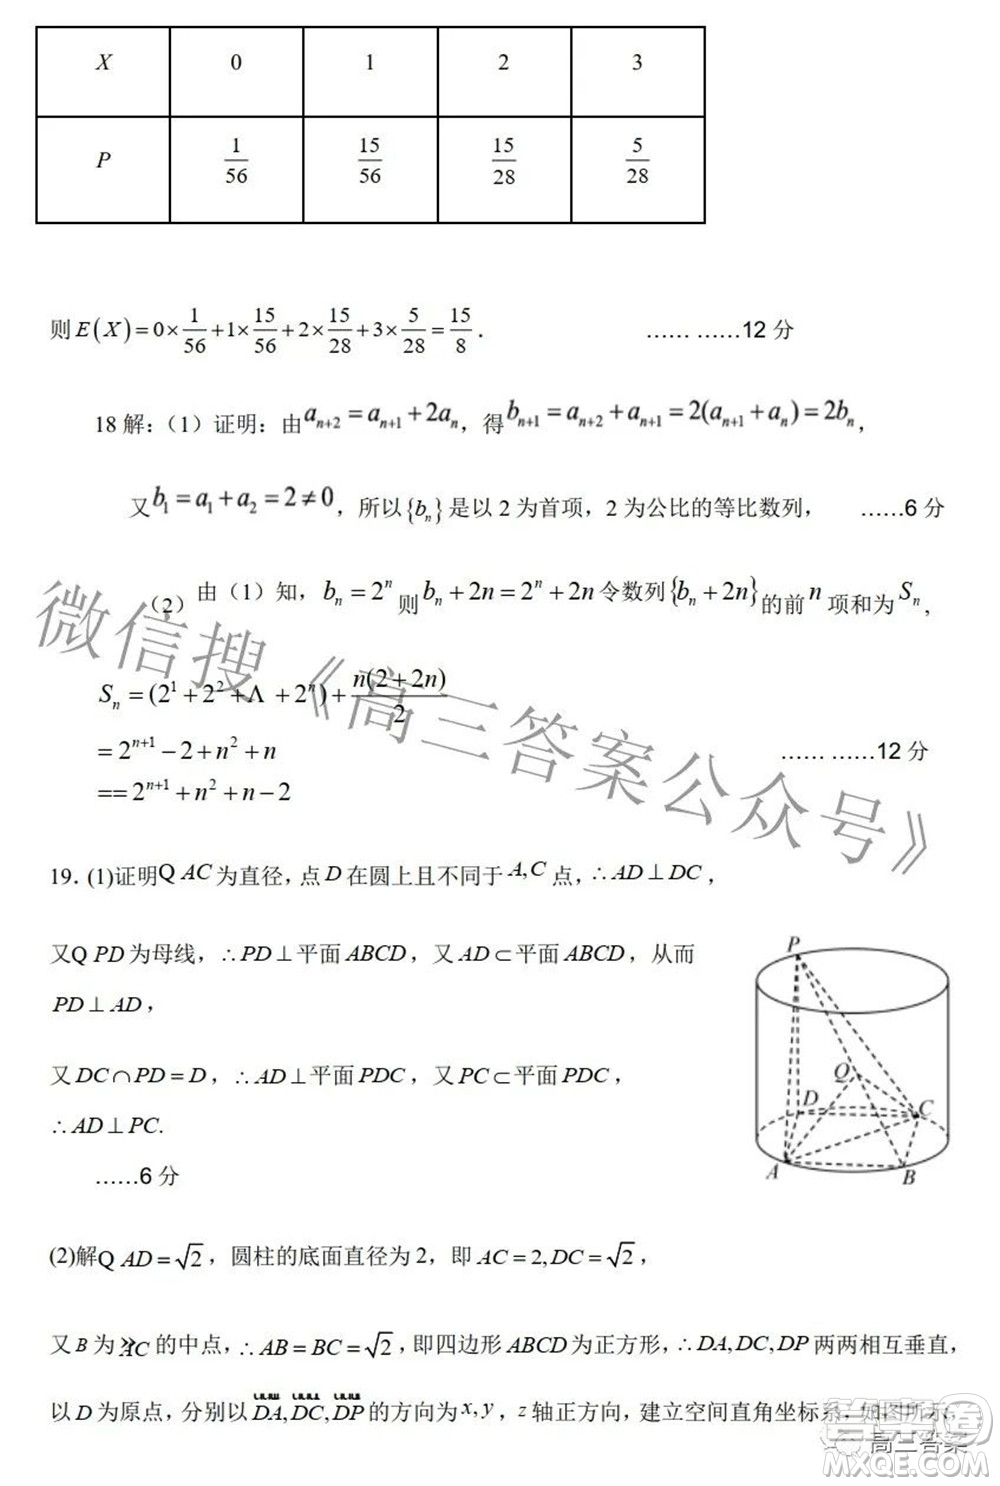 X 0 1 2 3
P 1/56 15/56 15/28 5/28
则E(X)=0×1/56+1×15/56+2×15/28+3×5/28=15/8. …… ……12 分
18 解:(1)证明:由a_{n+2}=a_{n+1}+2a_n,得b_{n+1}=a_{n+2}+a_{n+1}=2(a_{n+1}+a_n)=2b_n,
又b_1=a_1+a_2=2≠0,所以{b_n}是以 2 为首项,2 为公比的等比数列, ……6 分
(2) 由(1)知,b_n=2^n则b_n+2n=2^n+2n令数列{b_n+2n}的前n项和为S_n,
S_n=(2^1+2^2+Λ+2^n)+n(2+2n)/2
=2^{n+1}-2+n^2+n …… ……12 分
==2^{n+1}+n^2+n-2
19.(1)证明Q AC为直径,点D在圆上且不同于A,C点,∴AD⊥DC,
又Q PD为母线,∴PD⊥平面ABCD,又AD⊂平面ABCD,从而
PD⊥AD,
又DC∩PD=D,∴AD⊥平面PDC,又PC⊂平面PDC,
∴AD⊥PC.
……6 分
P
Q
D
C
A
B
(2)解Q AD=√2,圆柱的底面直径为 2,即AC=2,DC=√2,
又B为AC的中点,∴AB=BC=√2,即四边形ABCD为正方形,∴DA,DC,DP两两相互垂直,
以D为原点,分别以DA,DC,DP的方向为x,y,z轴正方向,建立空间直角坐标系,如图所示,
微信搜《高三答案公众号》
高三答案